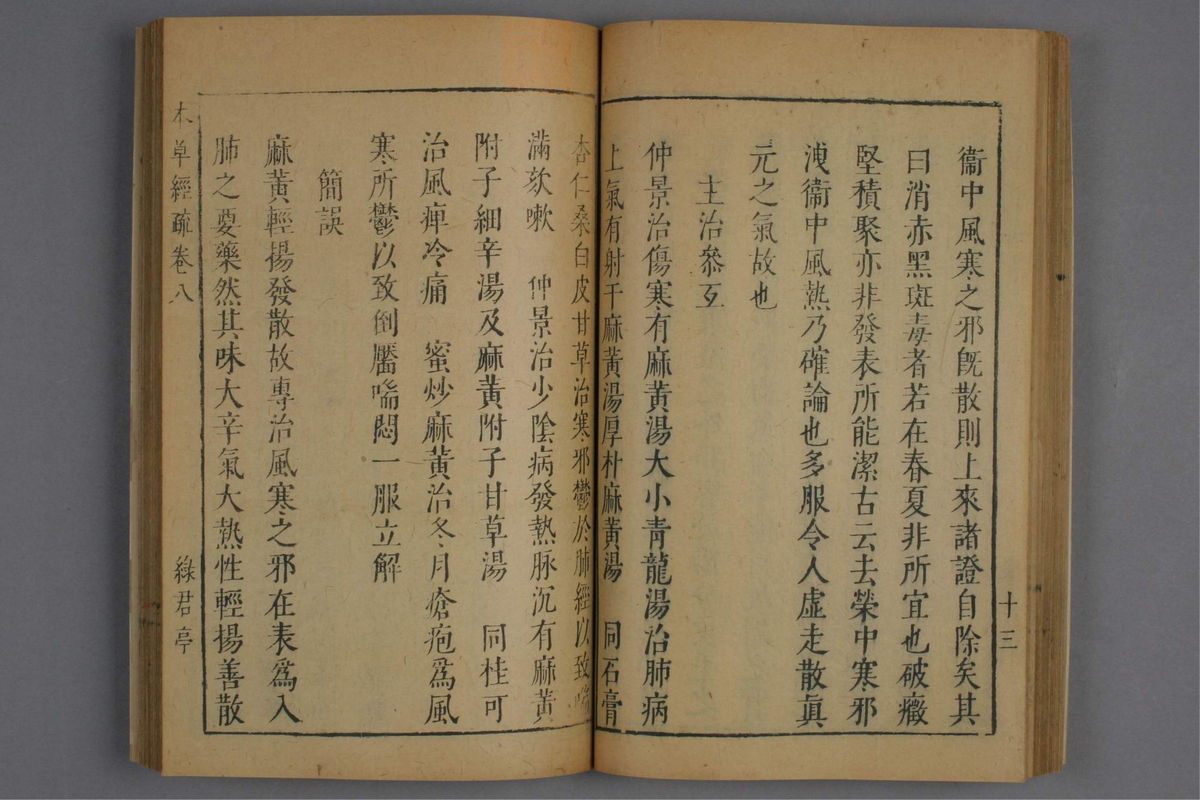 十三
衞中風寒之邪旣散則上來諸證自除矣其
曰消赤黑斑毒者若在春夏非所宜也破癥
堅積聚亦非發表所能潔古云去榮中寒邪
洩衞中風熱乃確論也多服令人虛走散眞
元之氣故也
主治叅互
仲景治傷寒有麻黃湯大小青龍湯治肺病
上氣有射干麻黃湯厚朴麻黃湯 同石膏
杏仁桑白皮甘草治寒邪鬱於肺經以致喘
滿欬嗽 仲景治少陰病發熱脉沉有麻黃
附子細辛湯及麻黃附子甘草湯 同桂可
治風痺冷痛 蜜炒麻黃治冬月瘡疱爲風
寒所鬱以致倒靨喘悶一服立解
簡誤
麻黃輕揚發散故專治風寒之邪在表爲入
肺之要藥然其味大辛氣大熱性輕揚善散
本草經疏卷八 綠君亭